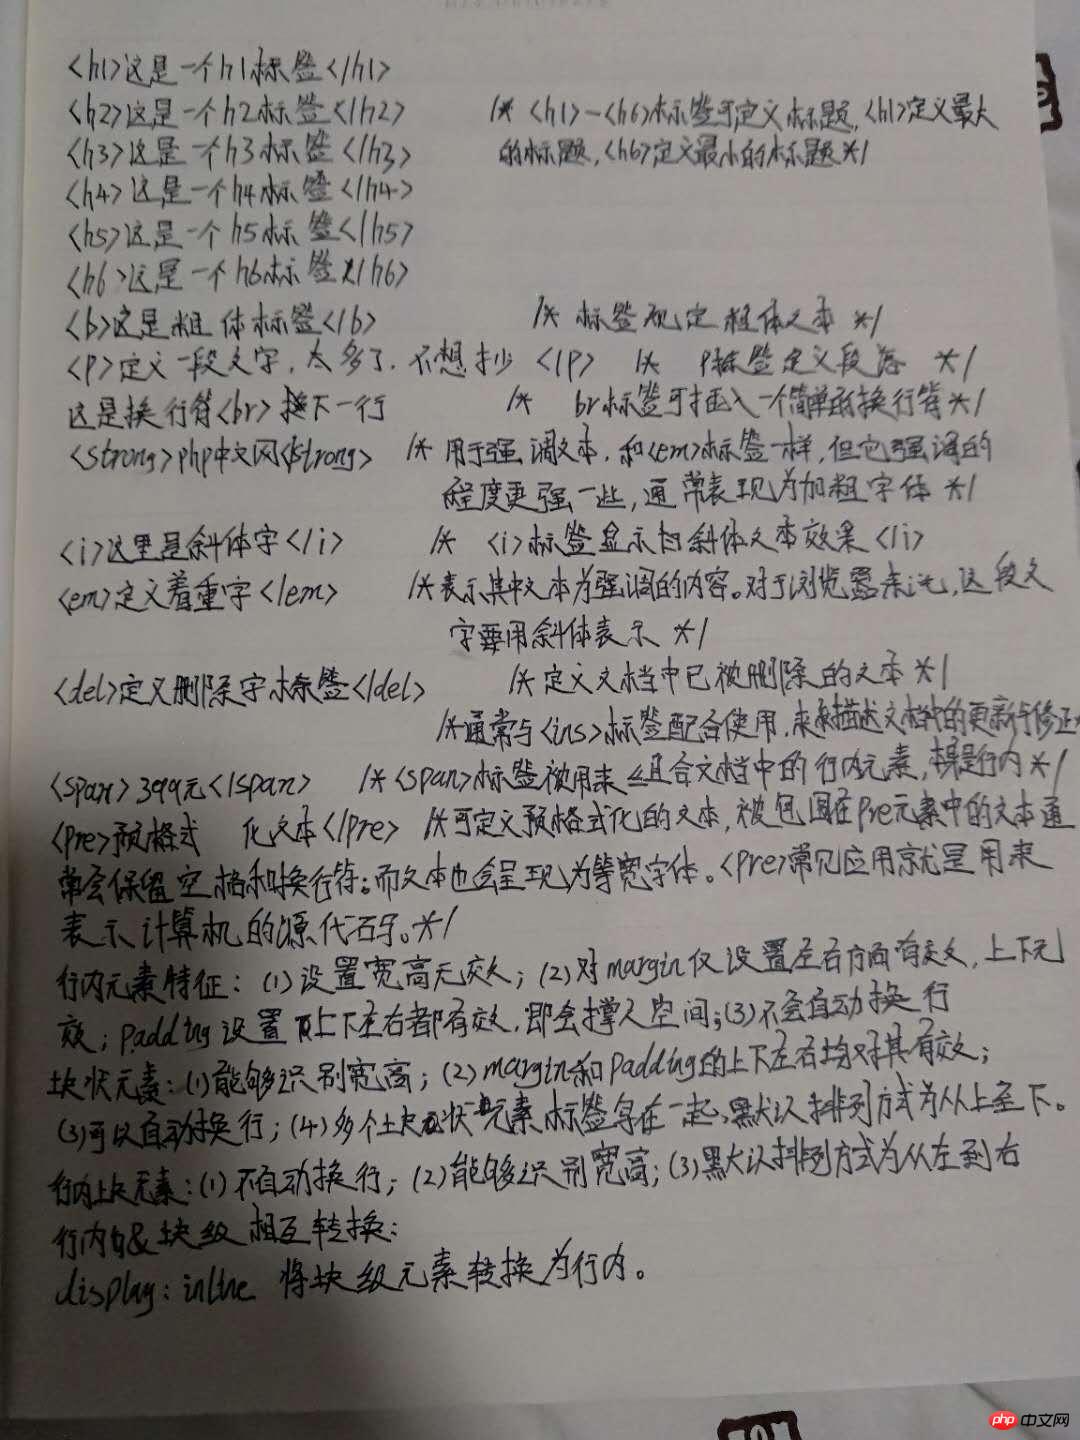 <h1>这是一个h1标签</h1>
<h2>这是一个h2标签</h2> /* <h1>—<h6>标签可定义标题,<h1>定义最大
<h3>这是一个h3标签</h3> 的标题,<h6>定义最小的标题*/
<h4>这是一个h4标签</h4>
<h5>这是一个h5标签</h5>
<h6>这是一个h6标签</h6>
<b>这是粗体标签</b> /* 标签规定粗体文本 */
<p>定义一段文字,太多了,不想抄</p> /* p标签定义段落 */
这是换行符<br>换下一行 /* br标签可插入一个简单的换行符*/
<strong>php中文网<strong> /* 用于强调文本,和<em>标签一样,但它强调的
程度更强一些,通常表现为加粗字体 */
<i>这里是斜体字</i> /* <i>标签显示的斜体文本效果</i>
<em>定义着重字</em> /*表示其中文本为强调的内容。对于浏览器来说,这段文
字要用斜体表示 */
<del>定义删除字标签</del> /*定义文档中已被删除的文本*/
/*通常与<ins>标签配合使用,来描述文档中的更新与修正*
<span>399元</span> /*<span>标签被用来组合文档中的行内元素,都是行内*/
<pre>预格式 化文本</pre> /*可定义预格式化的文本,被包围在pre元素中的文本通
常会保留空格和换行符;而文本也会呈现为等宽字体。<pre>常见应用就是用来
表示计算机的源代码。*/
行内元素特征:(1)设置宽高无效;(2)对margin仅设置左右方向有效,上下无
效;padding设置上下左右都有效,即会撑大空间;(3)不会自动换行
块状元素:(1)能够识别宽高;(2)margin和padding的上下左右均对其有效;
(3)可以自动换行;(4)多个块状元素标签写在一起,默认排列方式为从上至下。
行内块元素:(1)不自动换行;(2)能够识别宽高;(3)默认排列方式为从左到右
行内&块级相互转换:
display:inline 将块级元素转换为行内。
php 中文网